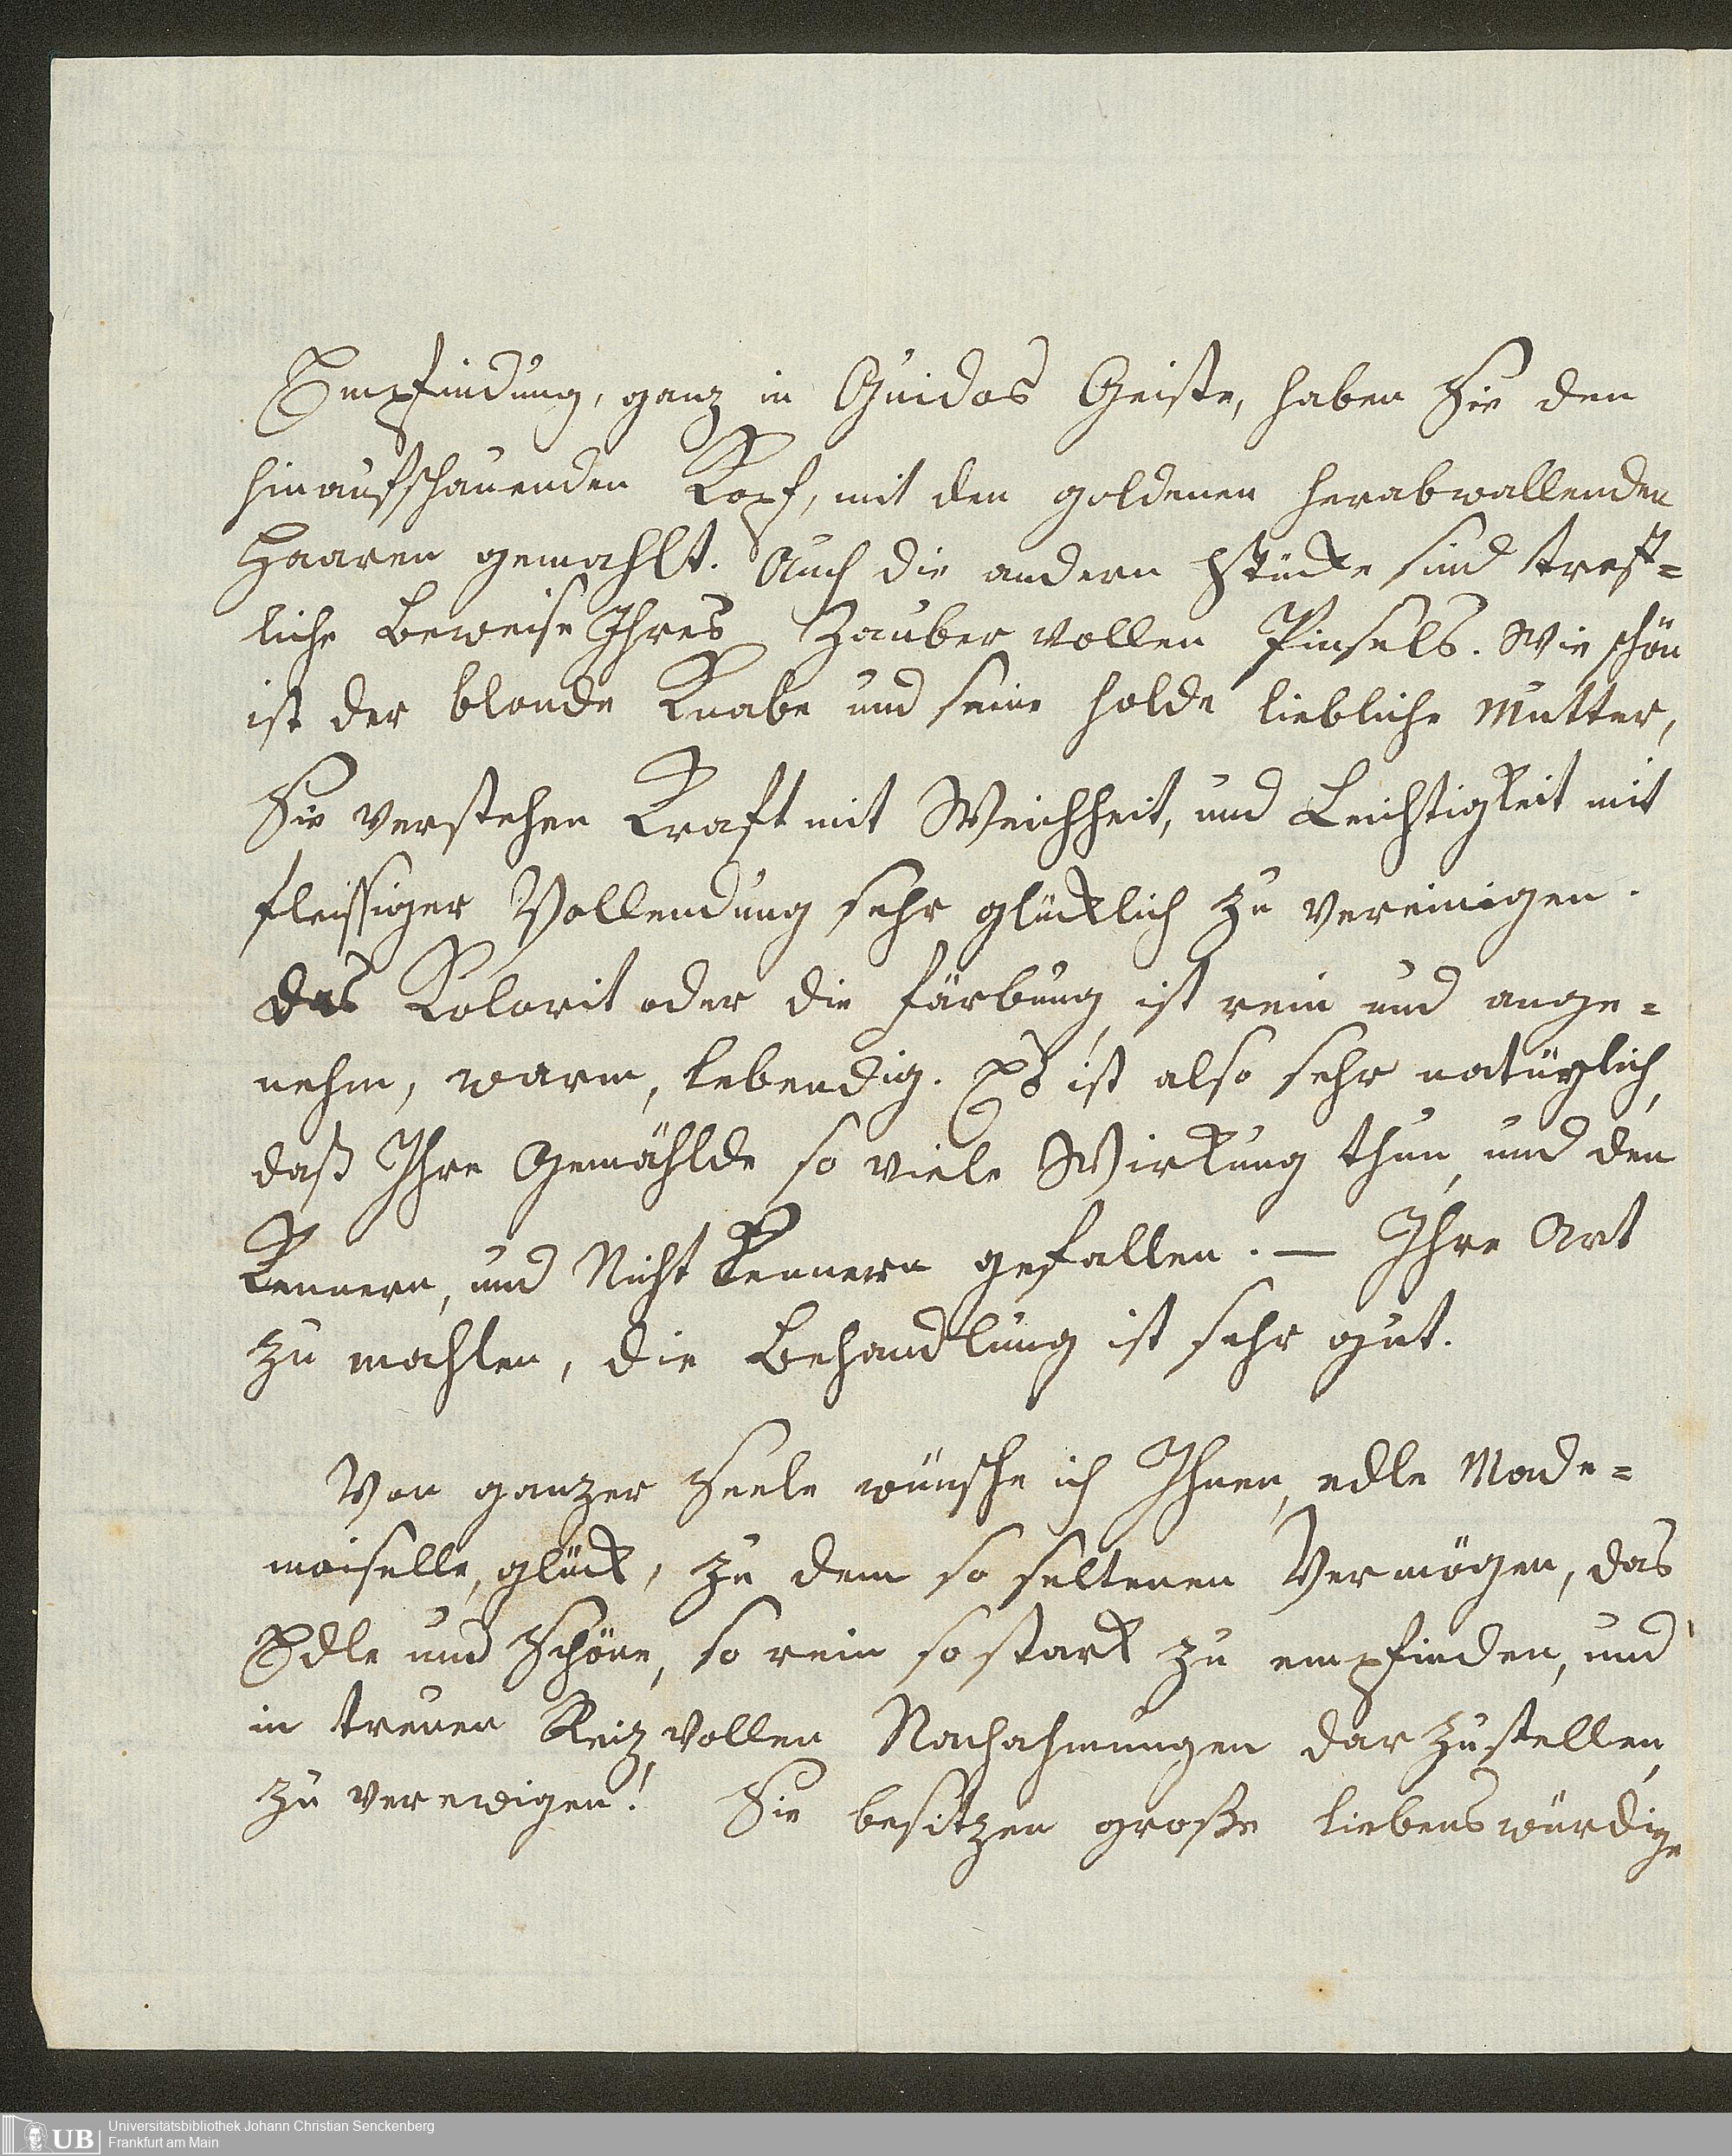 Empfindung, ganz in Guidos Geiste, haben Sie den
hinaufschauenden Kopf, mit den goldenen herabwallenden
Haaren gemahlt. Auch die andern Stücke sind tref-
liche Beweise Ihres Zauber vollen Pinsels. Wie schön
ist der blonde Knabe und seine holde liebliche Mutter,
Sie verstehen Kraft mit Weichheit, und Leichtigkeit mit
fleissiger Vollendung sehr glücklich zu vereinigen.
das Kolorit oder die Färbung, ist rein und ange=
nehm, warm, lebendig. Es ist also sehr natürlich,
daß Ihre Gemählde so viele Wirkung thun, und den
Kennern, und Nicht Kennern gefallen. — Ihre Art
zu mahlen, die Behandlung ist sehr gut.
Von ganzer Seele wünsche ich Ihnen, edle Made=
moiselle, glück, zu dem so seltenen Vermögen, das
Edle und Schöne, so rein so stark zu empfinden, und
in treuen Reiz vollen Nachahmungen darzustellen,
zu verewigen! Sie besitzen große liebenswürdige
UB
Universitätsbibliothek Johann Christian Senckenberg
Frankfurt am Main